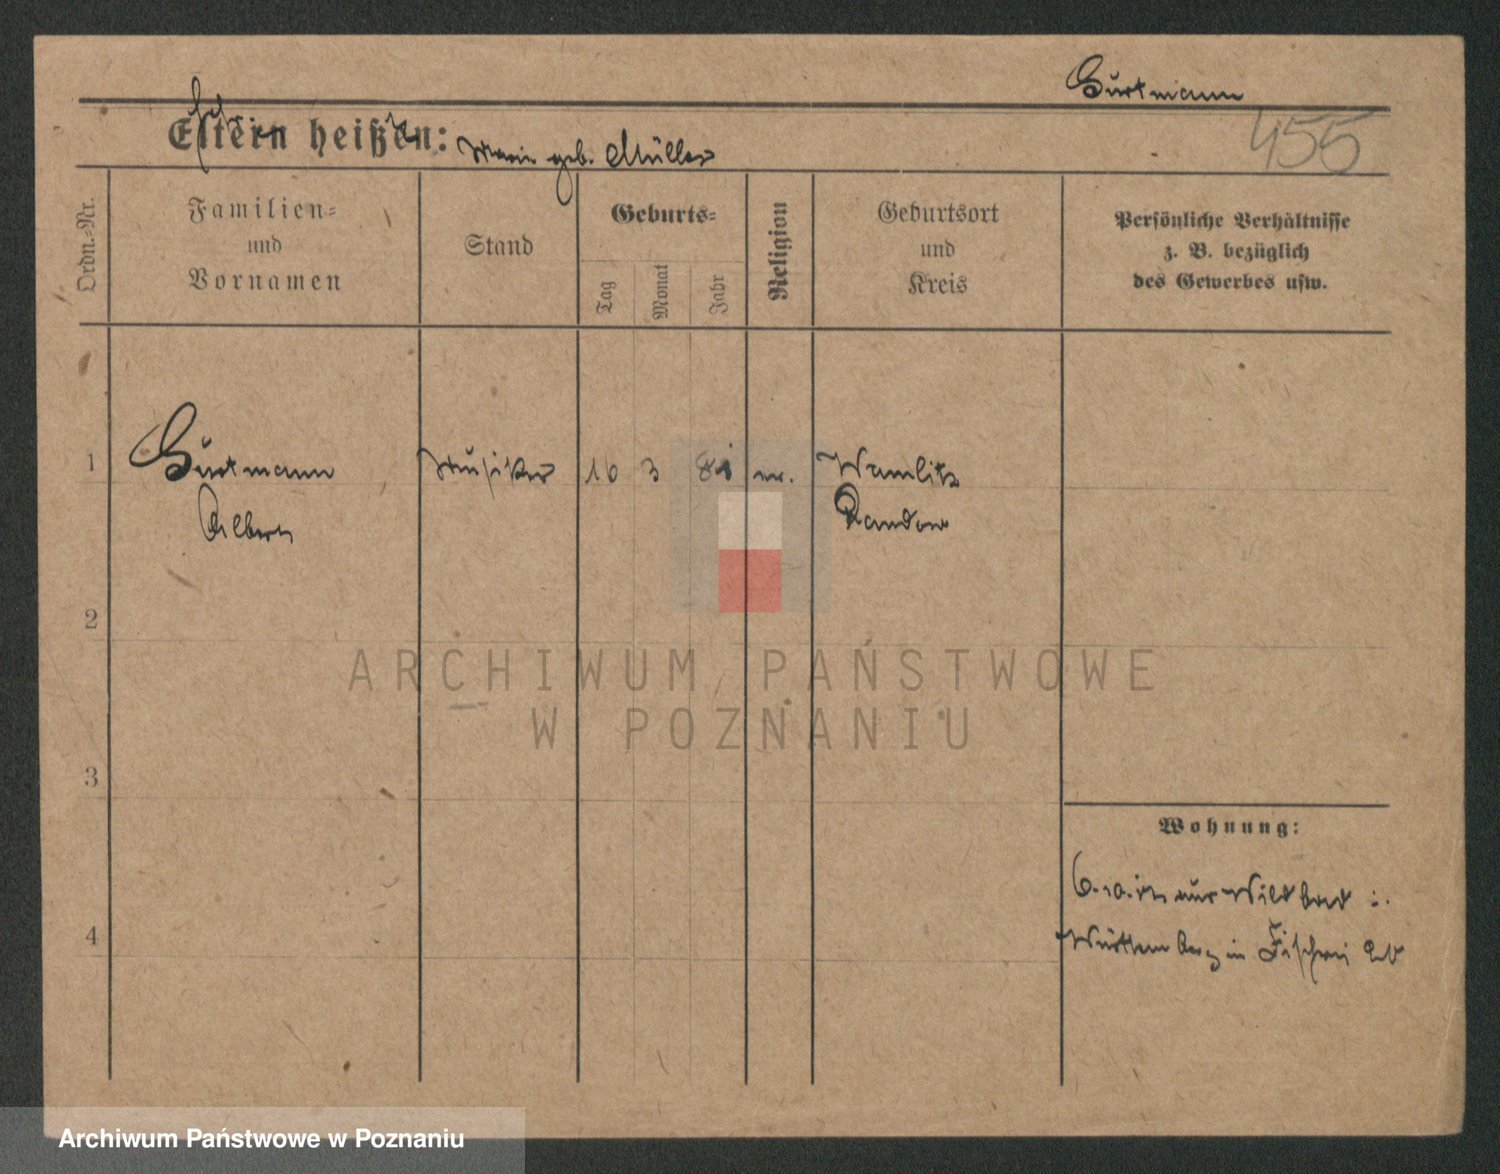 Gurtmann
455
Eltern heißen:
Marie geb. Müller
Ordn.-Nr.
Familien-
und
Vornamen
Stand
Geburts-
Tag
Monat
Jahr
Religion
Geburtsort
und
Kreis
Persönliche Verhältnisse
z. B. bezüglich
des Gewerbes usw.
1
Gurtmann
Musiker
16 3 81
Wamlitz
Albert
Randow
2
3
4
Wohnung:
6.10. aus Wildbad i.
Württemberg in Fischerei
ARCHIWUM PAŃSTWOWE
W POZNANIU
Archiwum Państwowe w Poznaniu